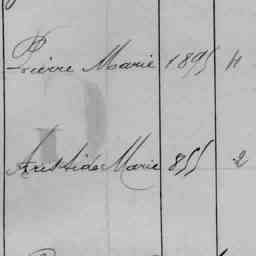 Pierre Marie 1895 4
Aristides Marie 855 2